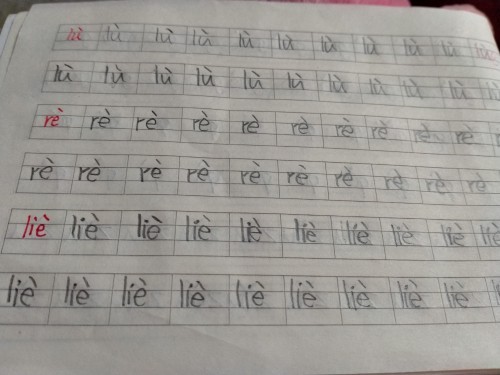 lù lù lù lù lù lù lù lù lù lù lù
lù lù lù lù lù lù lù lù lù lù
rè rè rè rè rè rè rè rè rè rè
rè rè rè rè rè rè rè rè rè rè
liè liè liè liè liè liè liè liè liè liè
liè liè liè liè liè liè liè liè liè